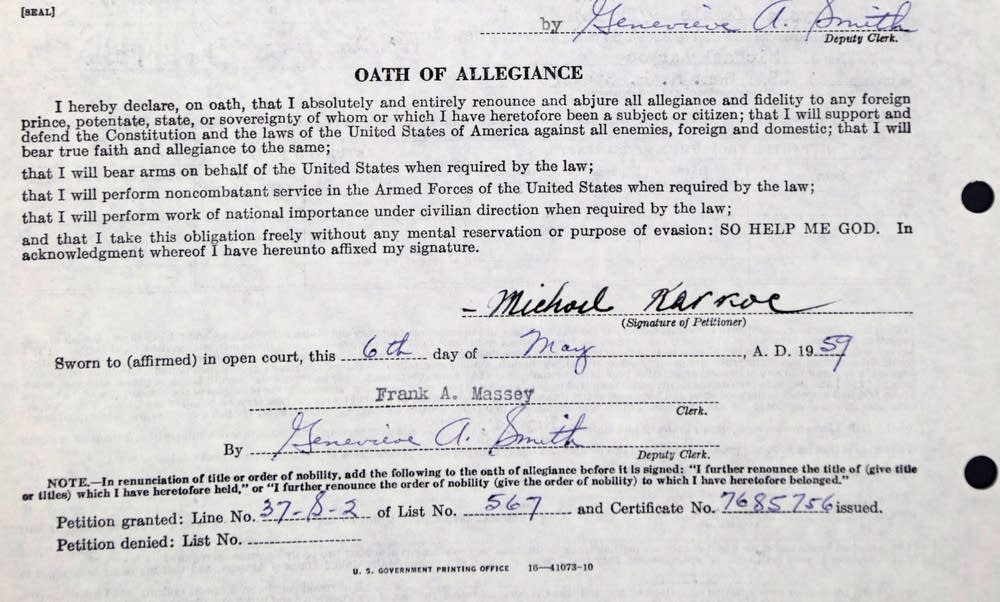 [SEAL]
by Genevieve A. Smith
Deputy Clerk.
OATH OF ALLEGIANCE
I hereby declare, on oath, that I absolutely and entirely renounce and abjure all allegiance and fidelity to any foreign
prince, potentate, state, or sovereignty of whom or which I have heretofore been a subject or citizen; that I will support and
defend the Constitution and the laws of the United States of America against all enemies, foreign and domestic; that I will
bear true faith and allegiance to the same;
that I will bear arms on behalf of the United States when required by the law;
that I will perform noncombatant service in the Armed Forces of the United States when required by the law;
that I will perform work of national importance under civilian direction when required by the law;
and that I take this obligation freely without any mental reservation or purpose of evasion: SO HELP ME GOD. In
acknowledgment whereof I have hereunto affixed my signature.
Michael Karkoc
(Signature of Petitioner)
Sworn to (affirmed) in open court, this 6th day of May, A. D. 1959
Frank A. Massey
Clerk.
By Genevieve A. Smith
Deputy Clerk.
NOTE.—In renunciation of title or order of nobility, add the following to the oath of allegiance before it is signed: "I further renounce the title of (give title
or titles) which I have heretofore held," or "I further renounce the order of nobility (give the order of nobility) to which I have heretofore belonged."
Petition granted: Line No. 37-B-2 of List No. 567 and Certificate No. 7685756 issued.
Petition denied: List No.
U. S. GOVERNMENT PRINTING OFFICE 16—41073-10